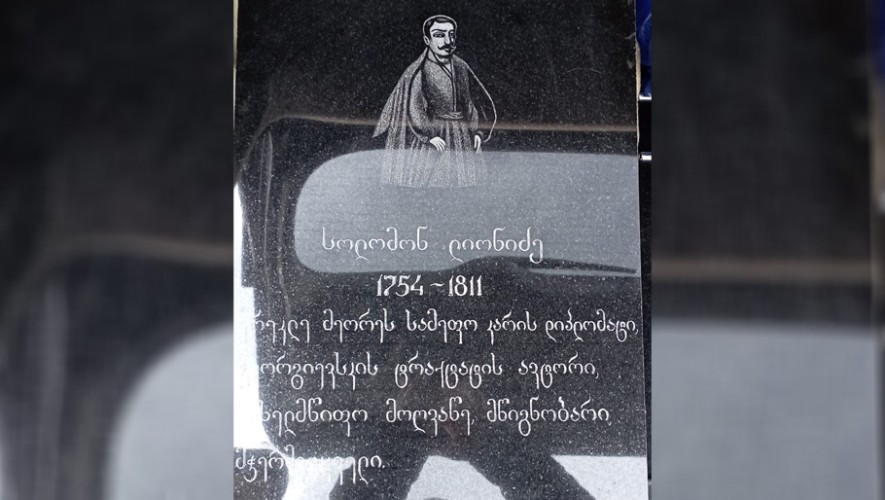 სოლომონ ლიონიძე
1754 ~ 1811
რეკლე მეორეს სამეფო კარის დიპლომატი,
ორგიევსკის ტრაქტატის ავტორი,
ხელმწიფო მოღვაწე, მწიგნობარი,